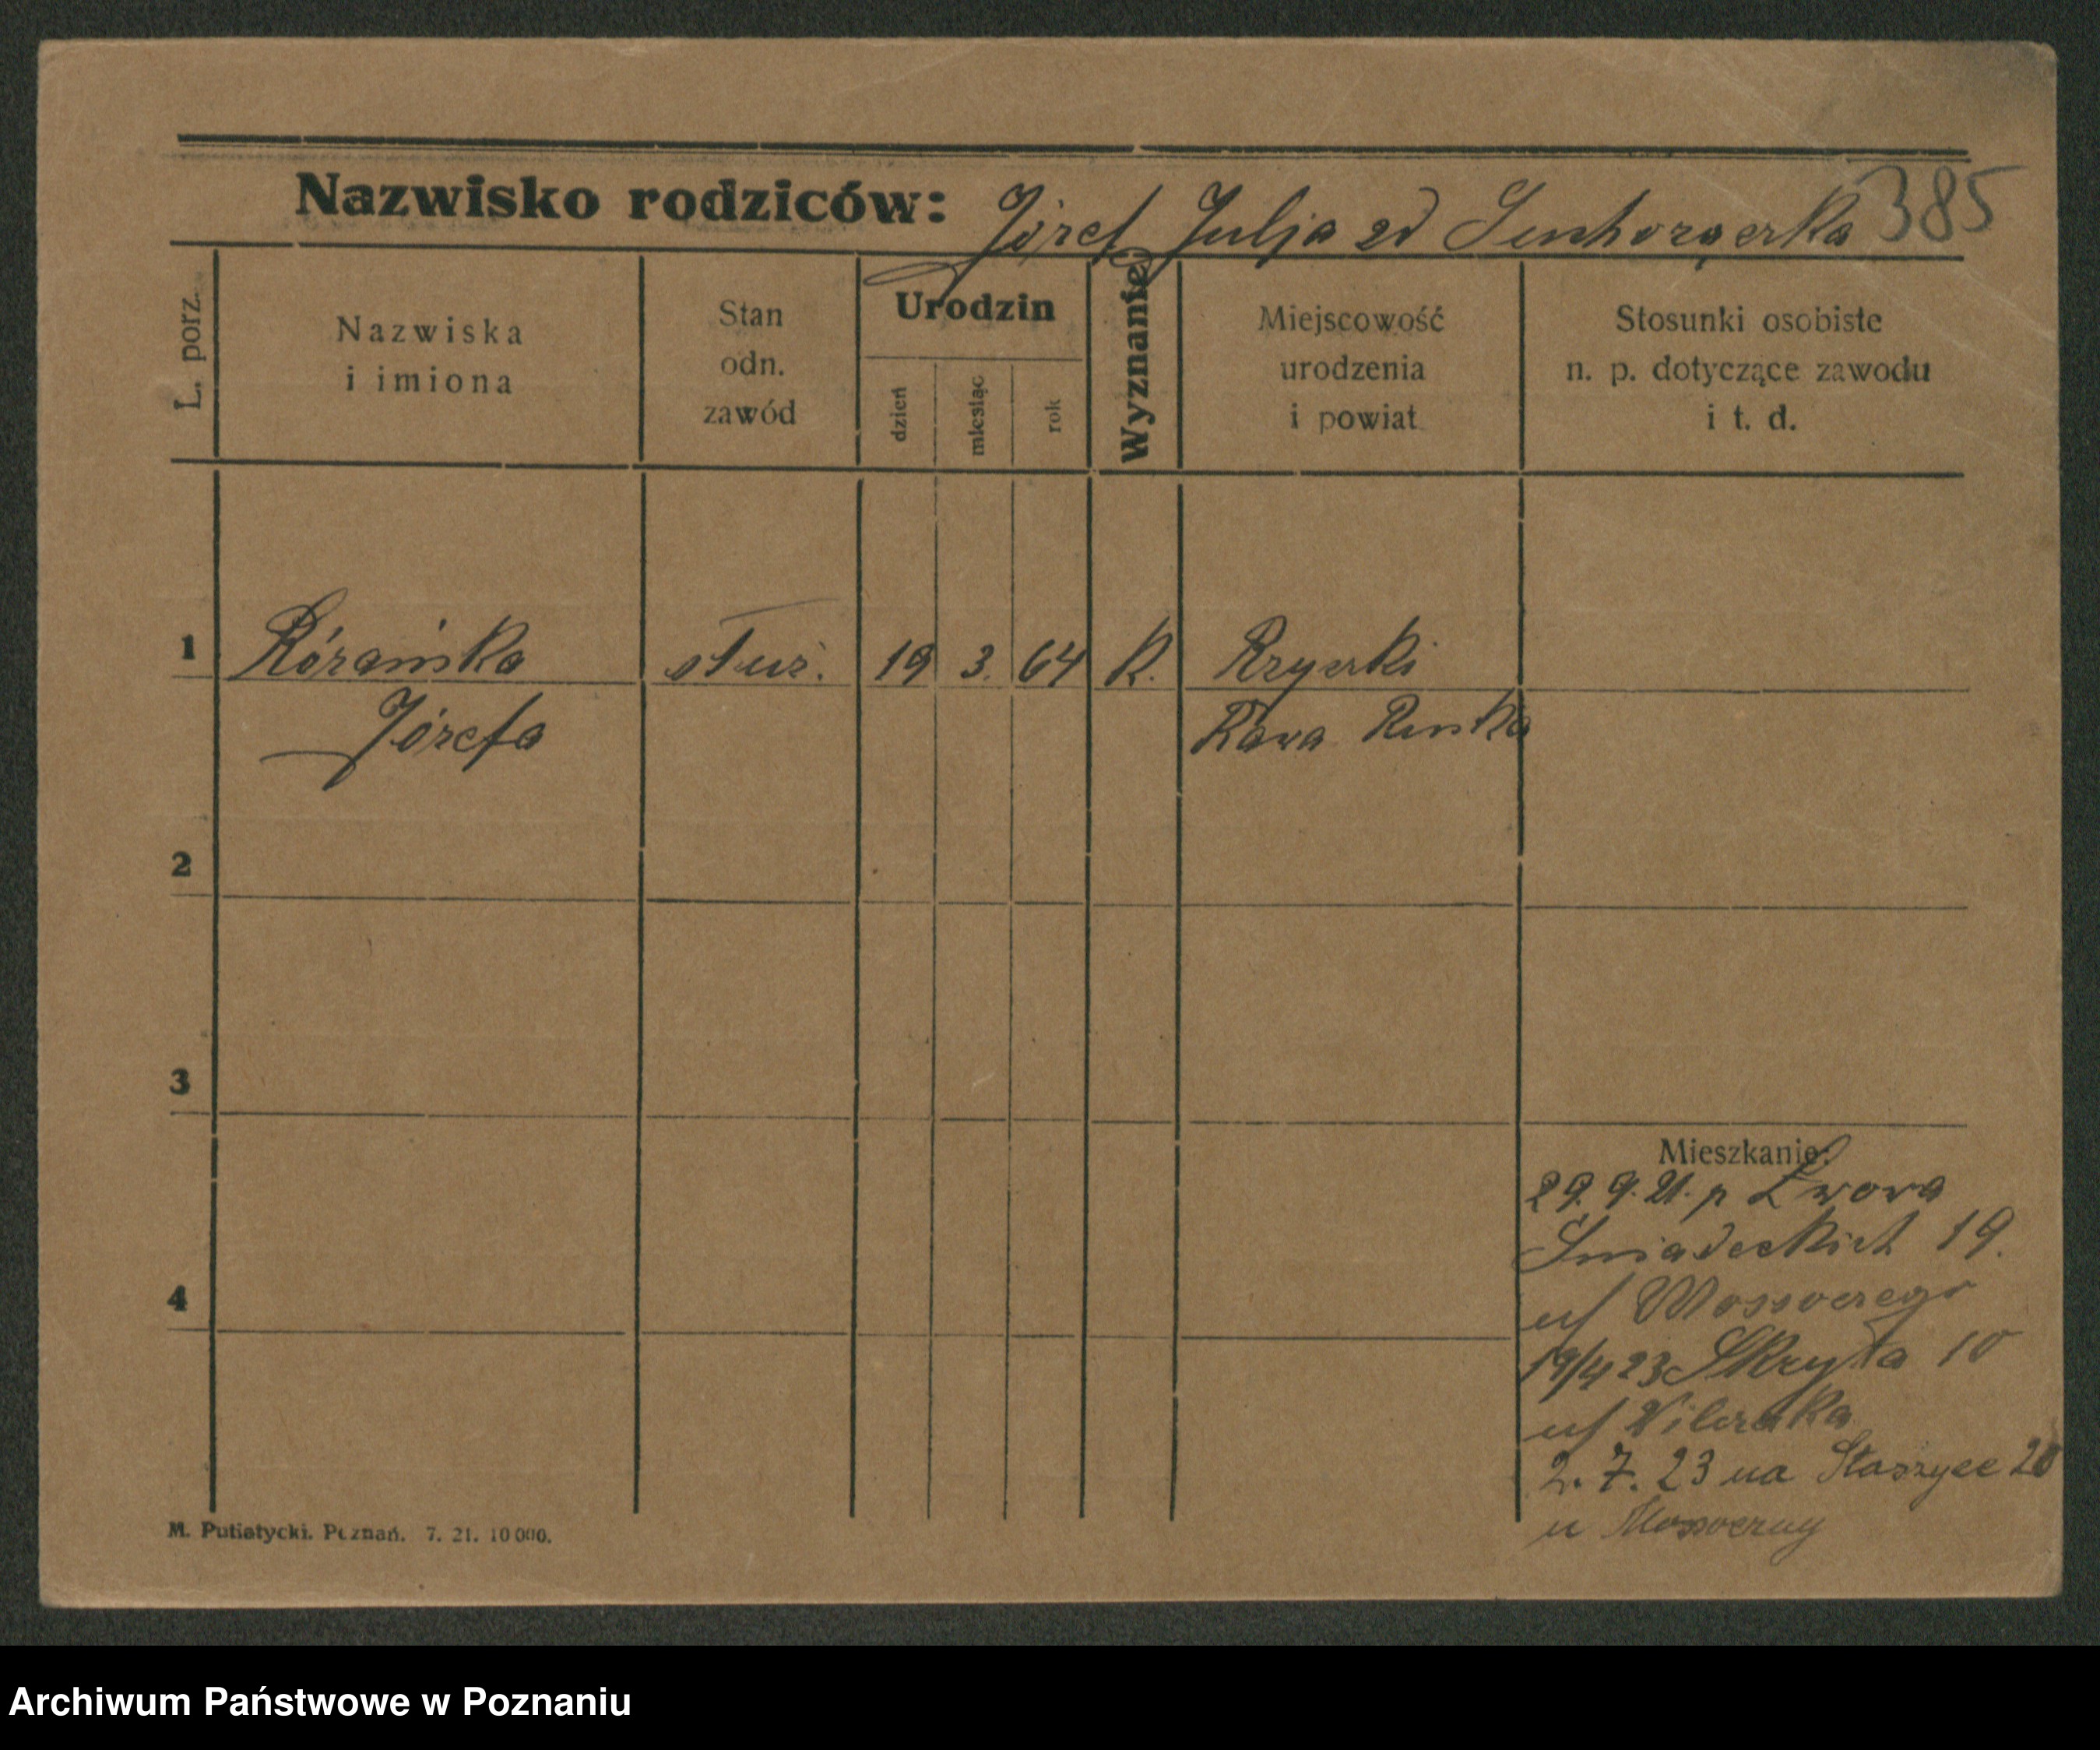 385
Nazwisko rodziców: Józef Julja zd
L. porz.
Nazwiska
i imiona
Stan
odn.
zawód
Urodzin
dzień
miesiąc
rok
Wyznanie
Miejscowość
urodzenia
i powiat
Stosunki osobiste
n. p. dotyczące zawodu
i t. d.
1 Różańska służ. 19 3. 64 R. Rzyczki
Józefa Rawa Ruska
2
3
Mieszkanie:
29. 9. 21. p Lwowa
Śniadeckich 19.
4
19/4 23 Skryta 10
2. 7. 23 na Staszyca 20
M. Putiatycki. Poznań. 7. 21. 10 000.
Archiwum Państwowe w Poznaniu